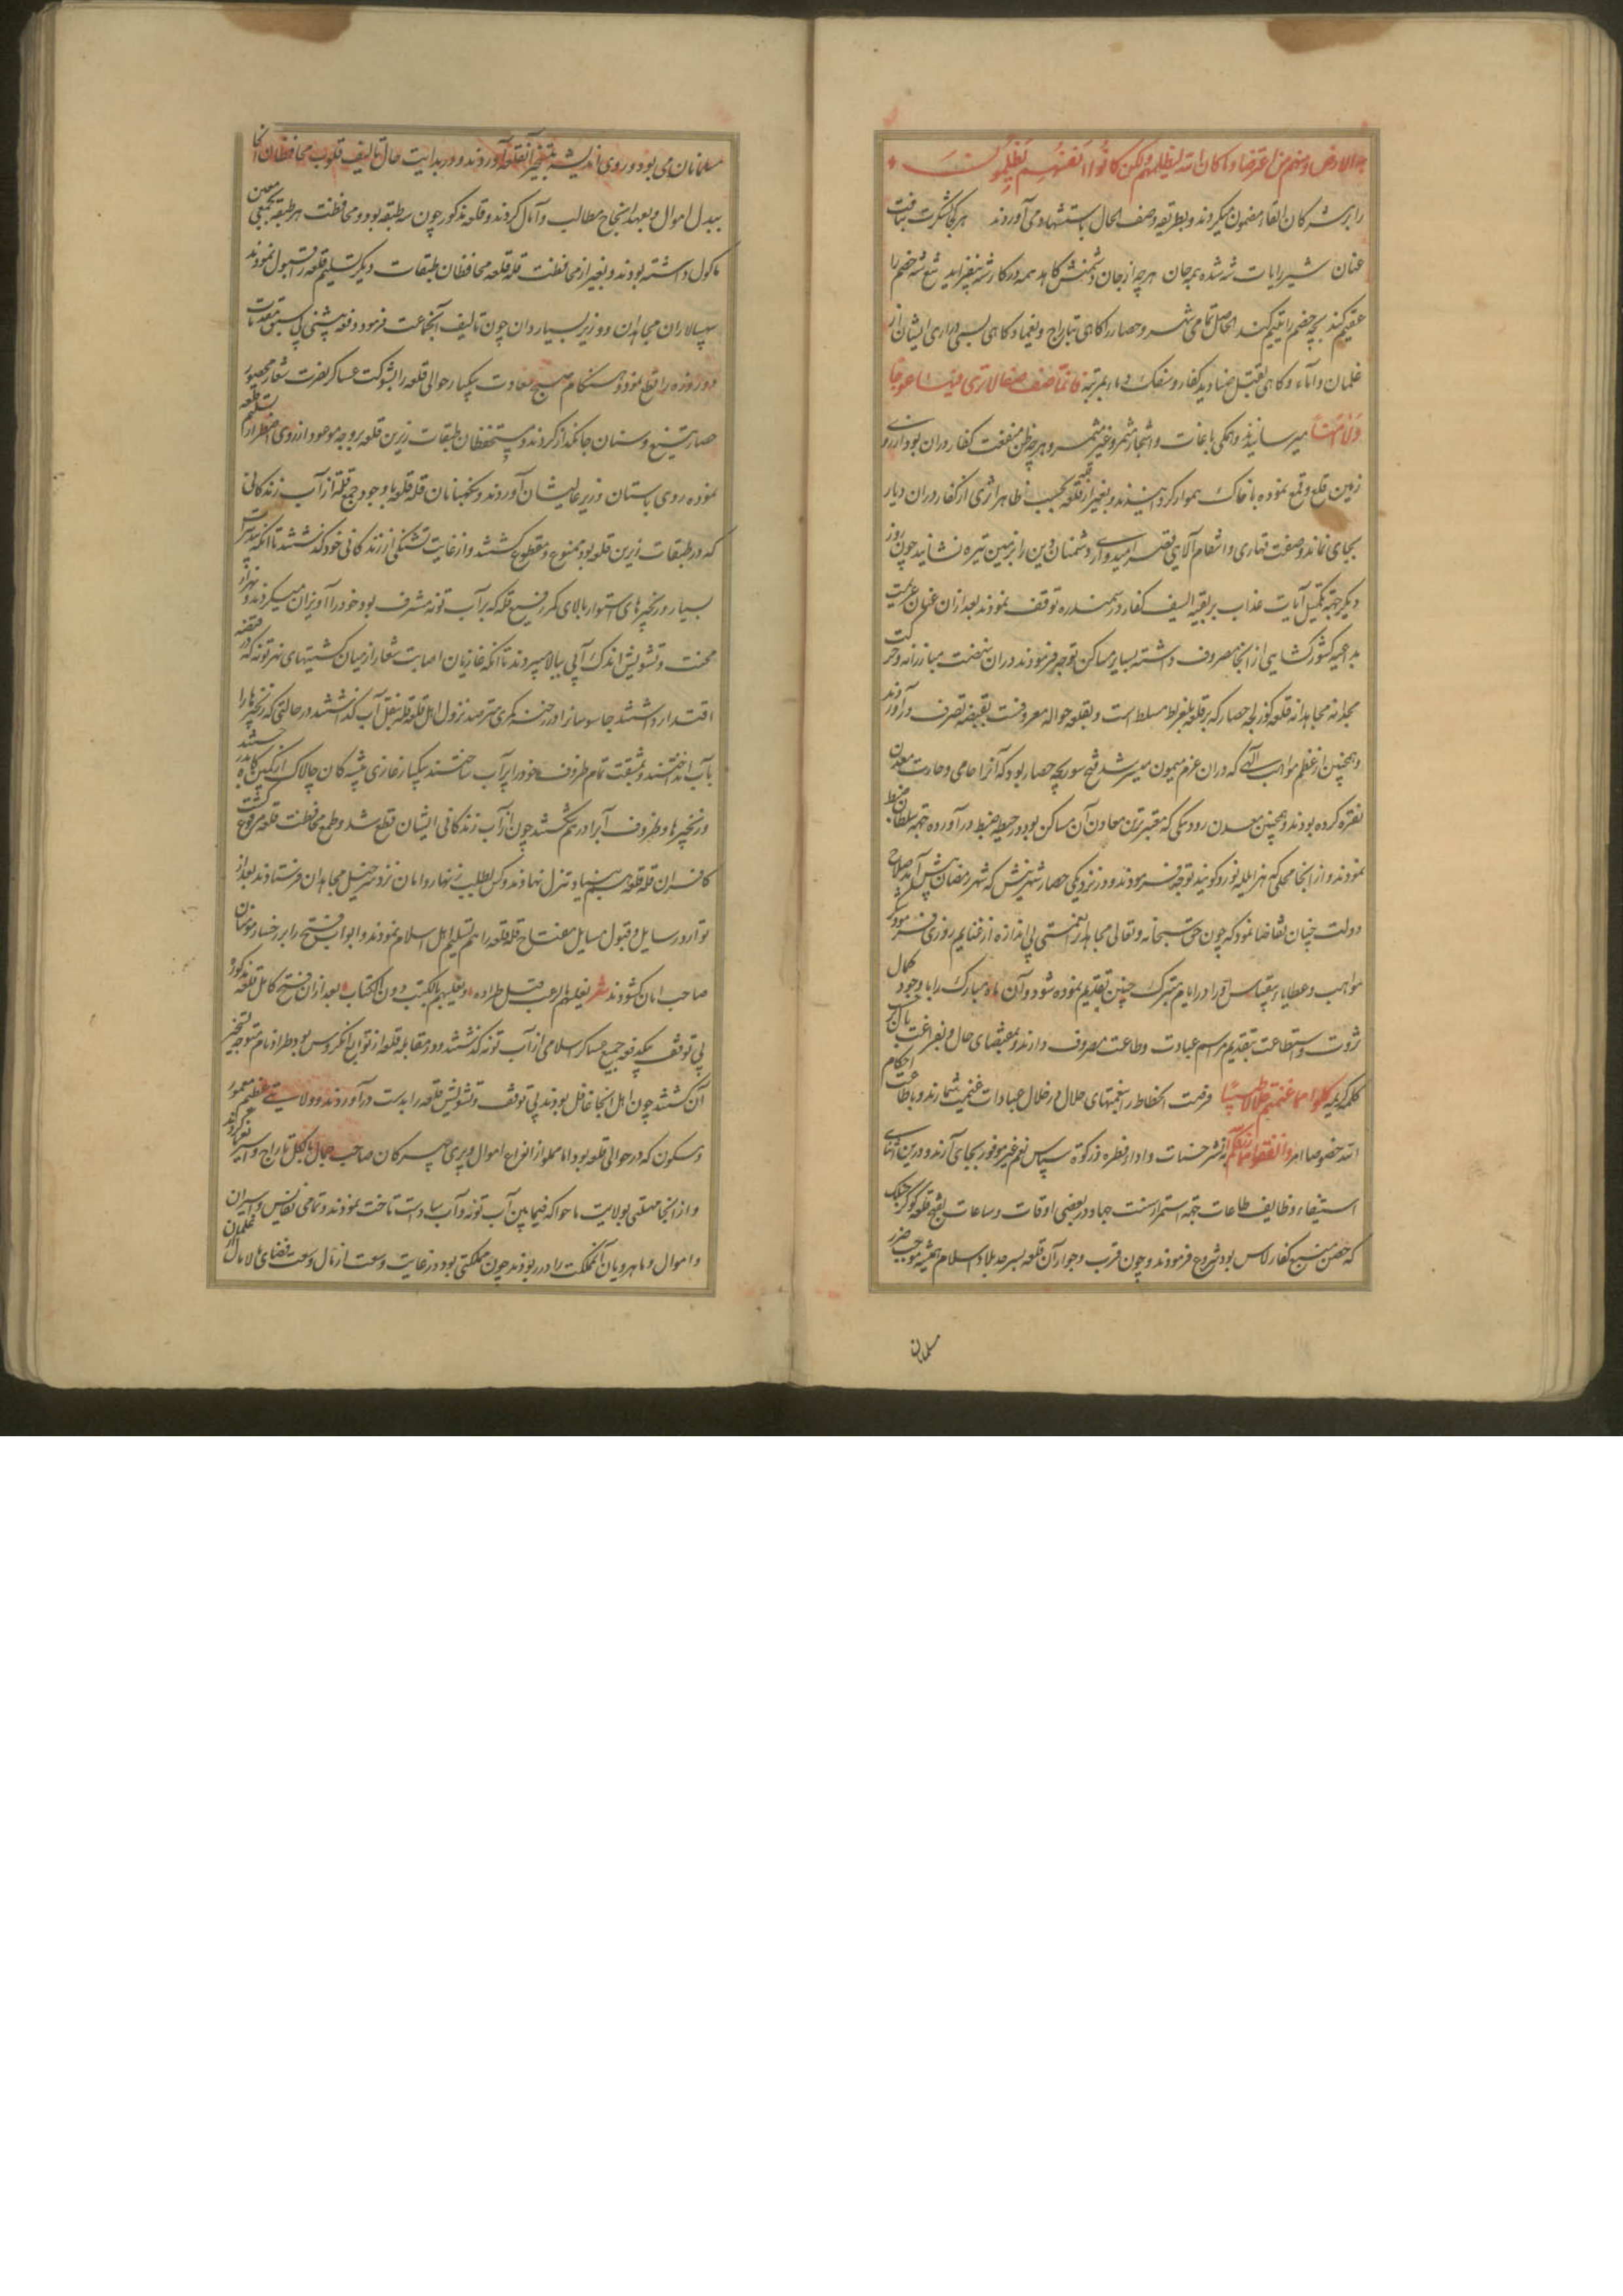 به الارض ومنهم من اغرقنا وما كان الله ليظلمهم ولكن كانوا انفسهم يظلمون
را بر مشرکان القاء مضمون میکردند و بطریقه وصف الحال باستشهاد می آوردند هر کجا لشکرت بتافت
عنان شیر رایات شه شده بیجان هر چه از جان دشمنش کاهد همه در کار شه بیفزاید تیغ شه خصم را
عقیم کند بچه خصم را یتیم کند الحاصل تمامی شهر و حصار را کاهی بتاراج و یغما و کاهی بسبی ذراری ایشان از
غلمان و اماء و کاهی بقتل صنادید کفار و سفک دماء بمرتبه قاعا صفصفا لا تری فیها عوجا
ولا امتا میرسانیدند و همکی باغات و اشجار مثمر و غیر مثمر و هر چه ظن منفعت کفار در آن بود از روی
زمین قلع و قمع نموده با خاک هموار کردانیدند و بغیر از قلعه بحسب ظاهر اثری از کفار در آن دیار
بجای نماند و صفت قهاری و انتقام آلهی قصر امیدواری دشمنان دین را بزمین تیره نشانید چون روز
دیکر جهة تکمیل آیات عذاب بر بقیه السیف کفار در سمندره توقف نمودند بعد از آن عنان عزیمت
بداعیه کشورکشایی از آنجا مصروف داشته بسایر مساکن توجه فرمودند در آن نهضت مبارزانه و حرکت
مجدانه مجاهدانه قلعه کوزلجه حصار که بر قلعه بلغراد مسلط است و بقلعه حواله معروفست بقبضه تصرف در آوردند
و همچنین از عظم مواهب آلهی که در آن عزم میمون میسر شد فتح سوریجه حصار بود که آنرا حامی و حارث معدن
نقره کرده بودند و همچنین معدن رودنیکی که معتبرترین معادن آن مساکن بود در حیطه ضبط در آورده جهة سلطان ضبط
نمودند و از آنجا بمحلی که هزارایله بورد کویند توجه فرمودند و در نزدیکی حصار شهرینش که شهر رمضان پیش آمد صلاح
دولت چنان تقاضا نمود که چون حق سبحانه و تعالی مجاهدانرا نعمتی بی اندازه از غنایم روزی فرمود شکر
مواهب و عطایا و سپاس او را در ایام متبرک چنین تقدیم نموده شود و آن ماه مبارک را با وجود کمال
ثروت و استطاعت بتقدیم مراسم عبادت و طاعت مصروف دارند و بمقتضای حال و بفراغت بال بر حسب
کلمه کریمه کلوا مما غنمتم حلالا طیبا فرصت انحطاط را بنعمتهای حلال در خلال عبادات غنیمت شمارند و باطاعت احکام
الله خصوصا امر وانفقوا مما رزقناکم از نشر حسنات و ادار فطره و زکوة سپاس نعم خیر موفور بجای آرند و درین اثنای
استیفاء وظایف طاعات جهة استمرار سنت جهاد در بعضی اوقات و ساعات بفتح قلعه کوکرجنلک
که حصن منیع کفار لاس بود شروع فرمودند و چون قرب و جوار آن قلعه بسرحد بلاد اسلام همیشه موجب ضرر
مسلمانان
مسلمانان می بود و روی اندیشه بتسخیر آن قلعه آوردند و در بدایت حال تالیف قلوب محافظان آنجا
ببذل اموال و بعهد انجاح مطالب و آمال کردند و قلعه مذکور چون سه طبقه بود و محافظت هر طبقه بجمعی معین
ماکول داشته بودند و بغیر از محافظت قله قلعه محافظان طبقات دیکر تسلیم قلعه را قبول نمودند
سپهسالاران مجاهدان و وزیر بسیاردان چون تالیف آنجماعت فرمود دفعه پیشین بی سبق مقدمات
دو روزه راه قطع نمود و هنکام صبح سعادت بیکبار حوالی قلعه را بشوکت عساکر نصرت شعار محصور
حصار تیغ و سنان جانکداز کردند و مستحفظان طبقات زیرین قلعه بر وجه موعود از روی اضطرار تسلیم قلعه
نموده روی باستان وزیر عالیشان آوردند و نکهبانان قله قلعه با وجود جمع قلة از آب زندکانی
که در طبقات زیرین قلعه بود ممنوع و مقطوع کشتند و از غایت تشنکی از زندکانی خود کذشتند تا آنکه بتدبیرات
بسیار و زنجیرهای استوار بالای کمر رفیع قله که بر آب تونه مشرف بود خود را آویزان میکردند و بهزار
محنت و تشویش اندک آبی ببالا میبردند تا آنکه غازیان اصابت شعار از میان کشتیهای نهر تونه که در قبضه
اقتدار داشتند جاسوسانرا در رخنه کمری مترصد نزول اهل قلعه قله بنقل آب کذاشتند در حالتی که زنجیرها را
بآب انداختند و بمشقت تمام ظروف خود را پر آب ساختند بیکبار غازی پیشه کان چالاک از کمین کاه بدر جستند
و زنجیرها و ظروف آب را در هم شکستند چون از آب زندکانی ایشان قطع شد و طمع محافظت قلعه مرفوع کشت
کافران قله قلعه هم بنیاد تنزل نهادند و کس بطلب زنهار و امان نزد سرخیل مجاهدان فرستادند بعد از
توارد رسایل و قبول مسایل مفتاح قله قلعه را هم تسلیم اهل اسلام نمودند و ابواب فتح را بر رخسار مومنان
صاحب امان کشودند شعر بعد از آن فتح کامل قلعه مذکوره
بی توقف یکدفعه جمیع عساکر اسلامی از آب تونه کذشتند و در مقابله قلعه از توابع انکروس بود طراز نام متوجه تسخیر
آن کشتند چون اهل آنجا غافل بودند بی توقف و تشویش قلعه را بدست در آوردند و ولایتی عظیم معمور
و مسکون که در حوالی قلعه بود و اما مملو از انواع اموال و پری چهرکان صاحب جمال بالکل تاراج و اسیر کردند
و از آنجا بولایت ماحوا که فیمابین آب تونه و آب ساواست تاخت نمودند و تمامی نفایس و اسیران
و اموال و ماهرویان آن مملکت را در ربودند چون مملکتی بود در غایت وسعت از مال